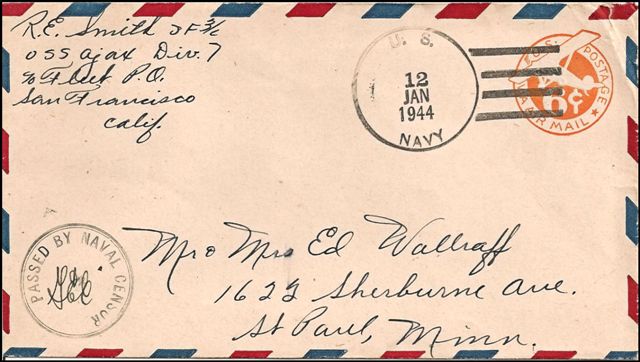 R.E. Smith SF 3/c
USS Ajax Div. 7
c/o Fleet P.O.
San Francisco
Calif.
U. S.
12
JAN
1944
NAVY
U.S. POSTAGE
6¢
AIR MAIL
PASSED BY NAVAL CENSOR
Mr & Mrs Ed Wallraff
1623 Sherburne Ave.
St Paul, Minn.